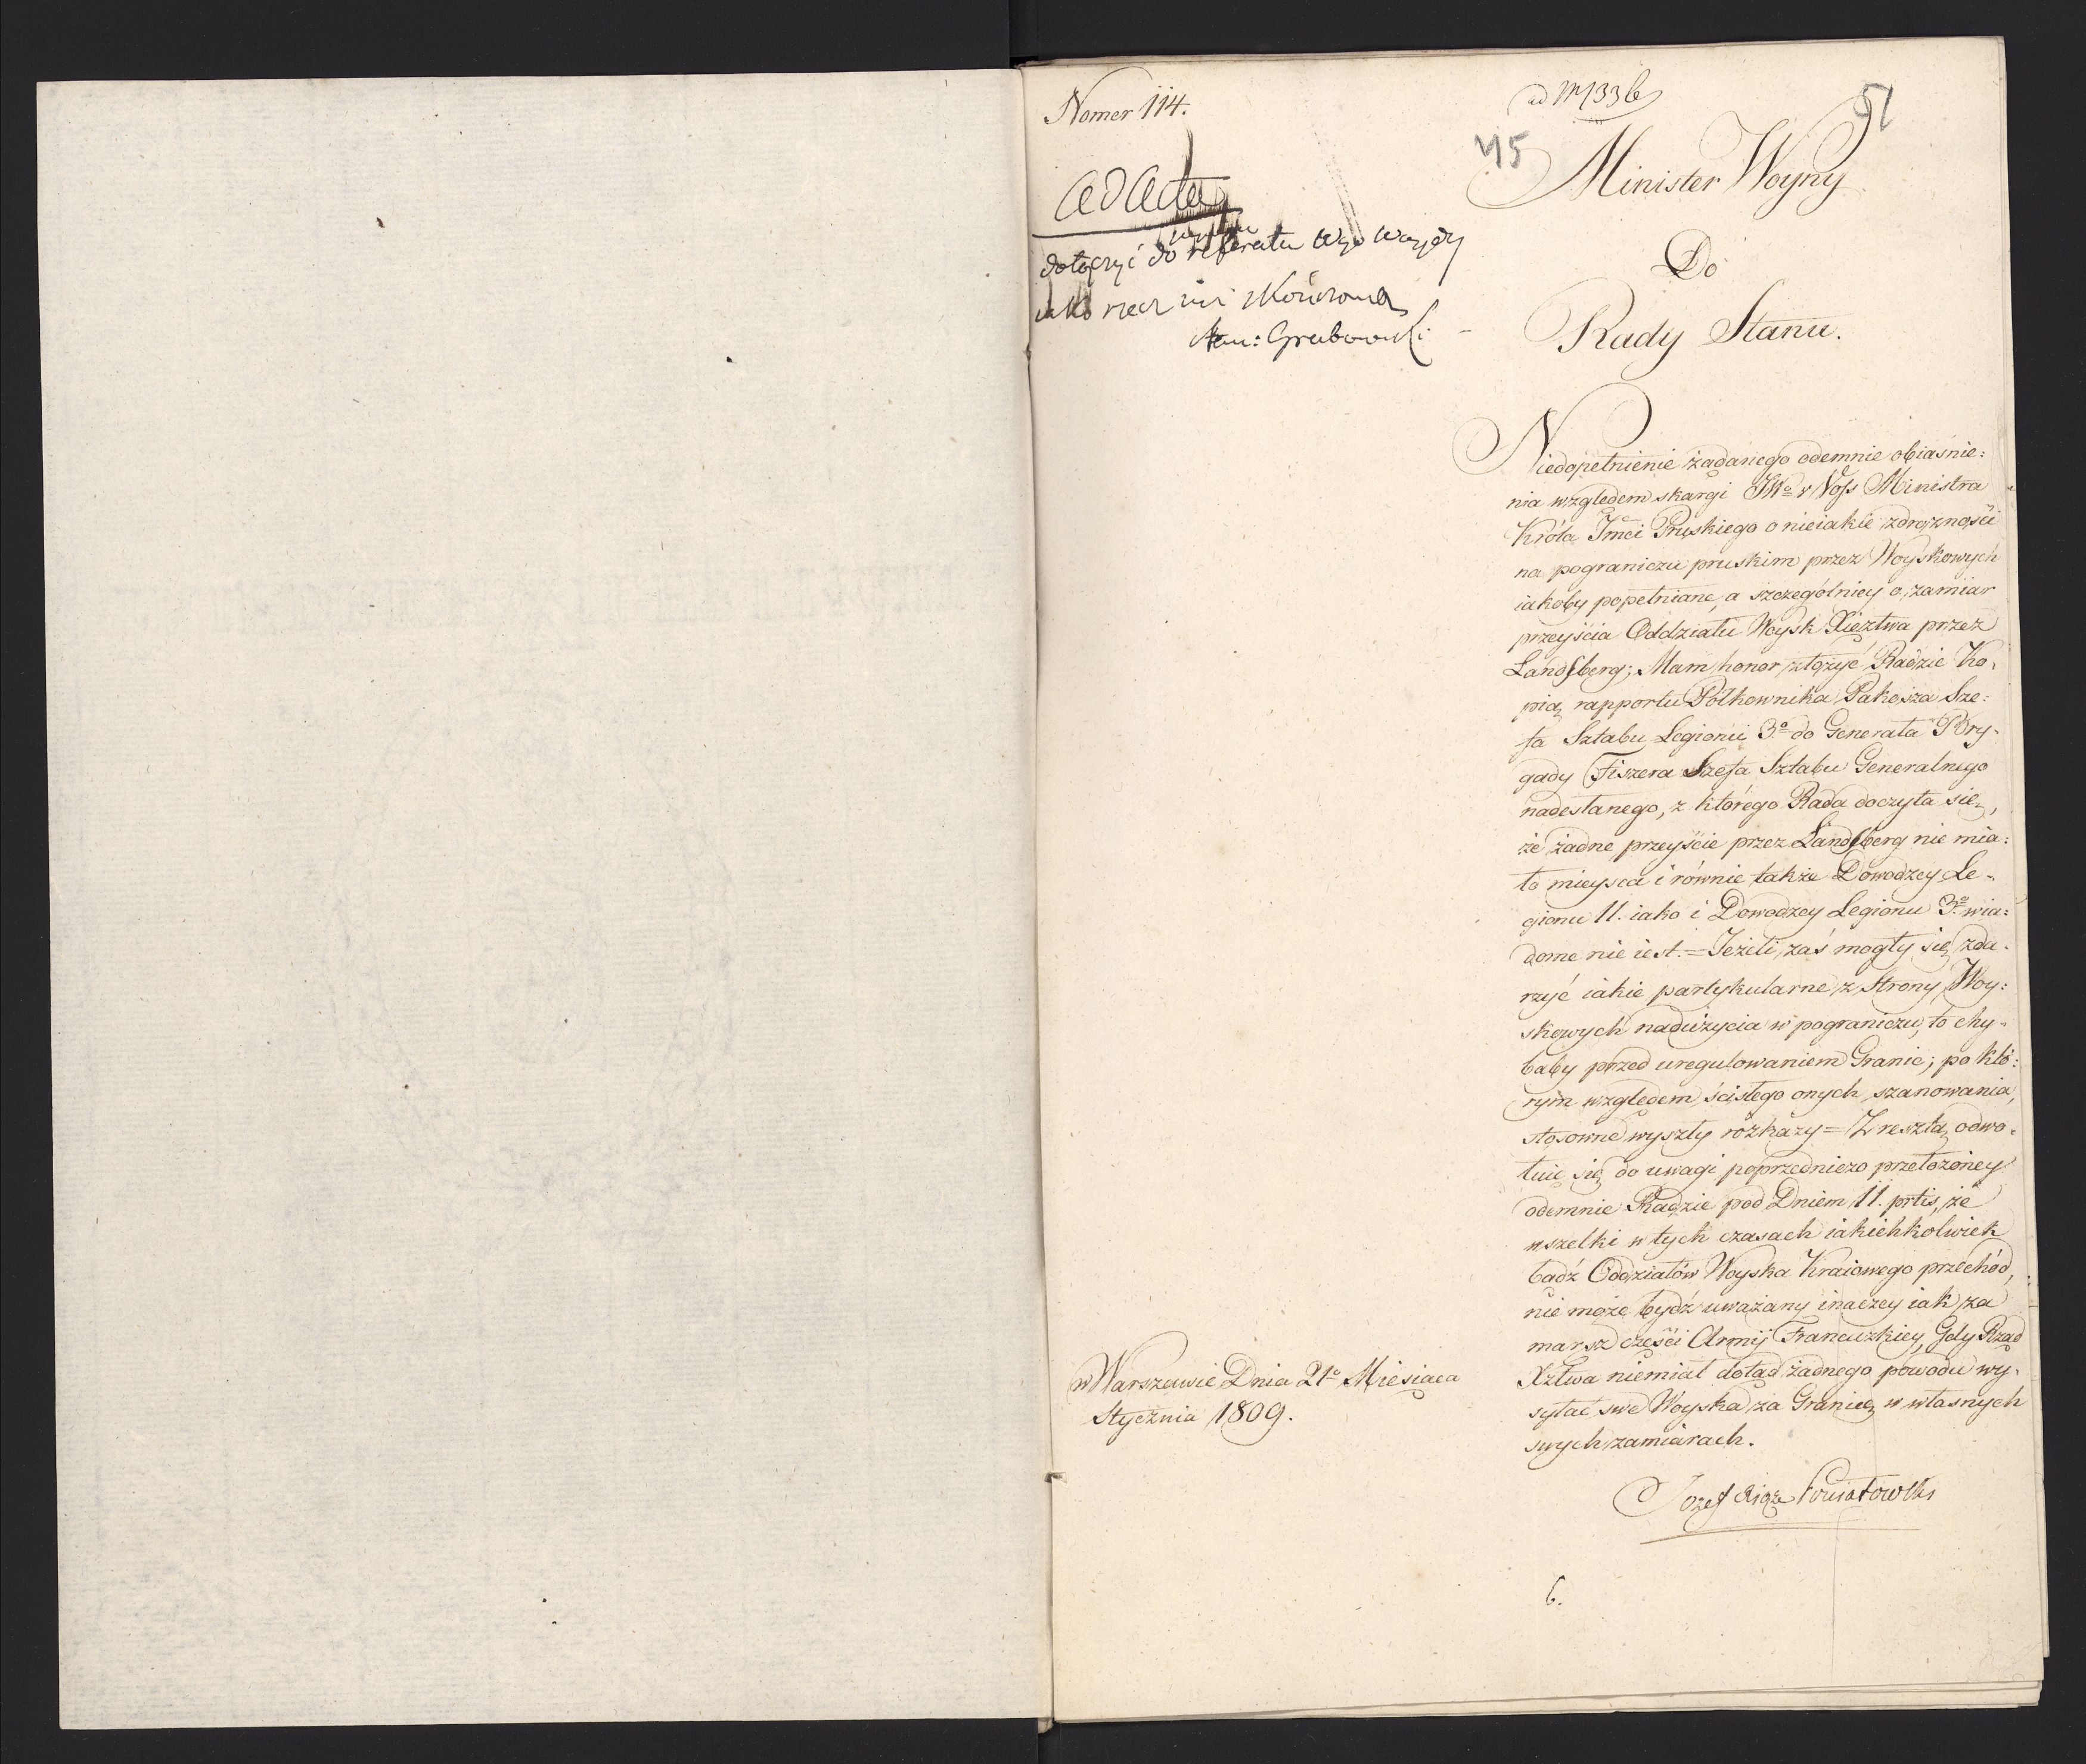 Nomer 114.
ad Nr 1336
45
51
Minister Woyny
Do
Rady Stanu.
ad Acta
dołączyć do referatu wyż wszy
iako rzecz iuż skończona
Stan: Grabowski
Niedopełnienie żądanego odemnie obiaśnie:
nia względem skargi JWo v Voss Ministra
Króla Jmci Pruskiego o nieiakie zdrożności
na pograniczu pruskim przez Woyskowych
iakoby popełniane, a szczególniey o zamiar
przeyścia Oddziału Woysk Xięztwa przez
Landsberg; Mam honor złożyć Radzie Ko,
pią rapportu Półkownika Pakosza Sze:
fa Sztabu Legionu 3o do Generała Bry-
gady Fiszera Szefa Sztabu Generalnego
nadesłanego, z którego Rada doczyta się,
że żadne przeyście przez Landsberg nie mia:
ło mieysca i równie także Dowodzcy Le-
gionu 11. iako i Dowodzcy Legionu 3o wia:
dome nie iest. = Jeżeli zaś mogły się zda-
rzyć iakie partykularne z Strony Woy:
skowych nadużycia w pograniczu, to chy-
baby przed uregulowaniem Granic; po któ:
rym względem ścisłego onych szanowania,
stosowne wyszły rozkazy = Zresztą odwo-
łuię się do uwagi poprzedniczo przełożoney
odemnie Radzie pod Dniem 11. prtis, że
wszelki w tych czasach iakichkolwiek
bądź Oddziałów Woyska Kraiowego przechód,
nie może bydź uważany inaczey iak za
marsz części Armij Francuzkiey, Gdy Rząd
Xztwa niemiał dotąd żadnego powodu wy-
syłać swe Woyska za Granicę w własnych
swych zamiarach.
w Warszawie Dnia 21o Miesiąca
Stycznia 1809.
Józef Xiąże Poniatowski
6.